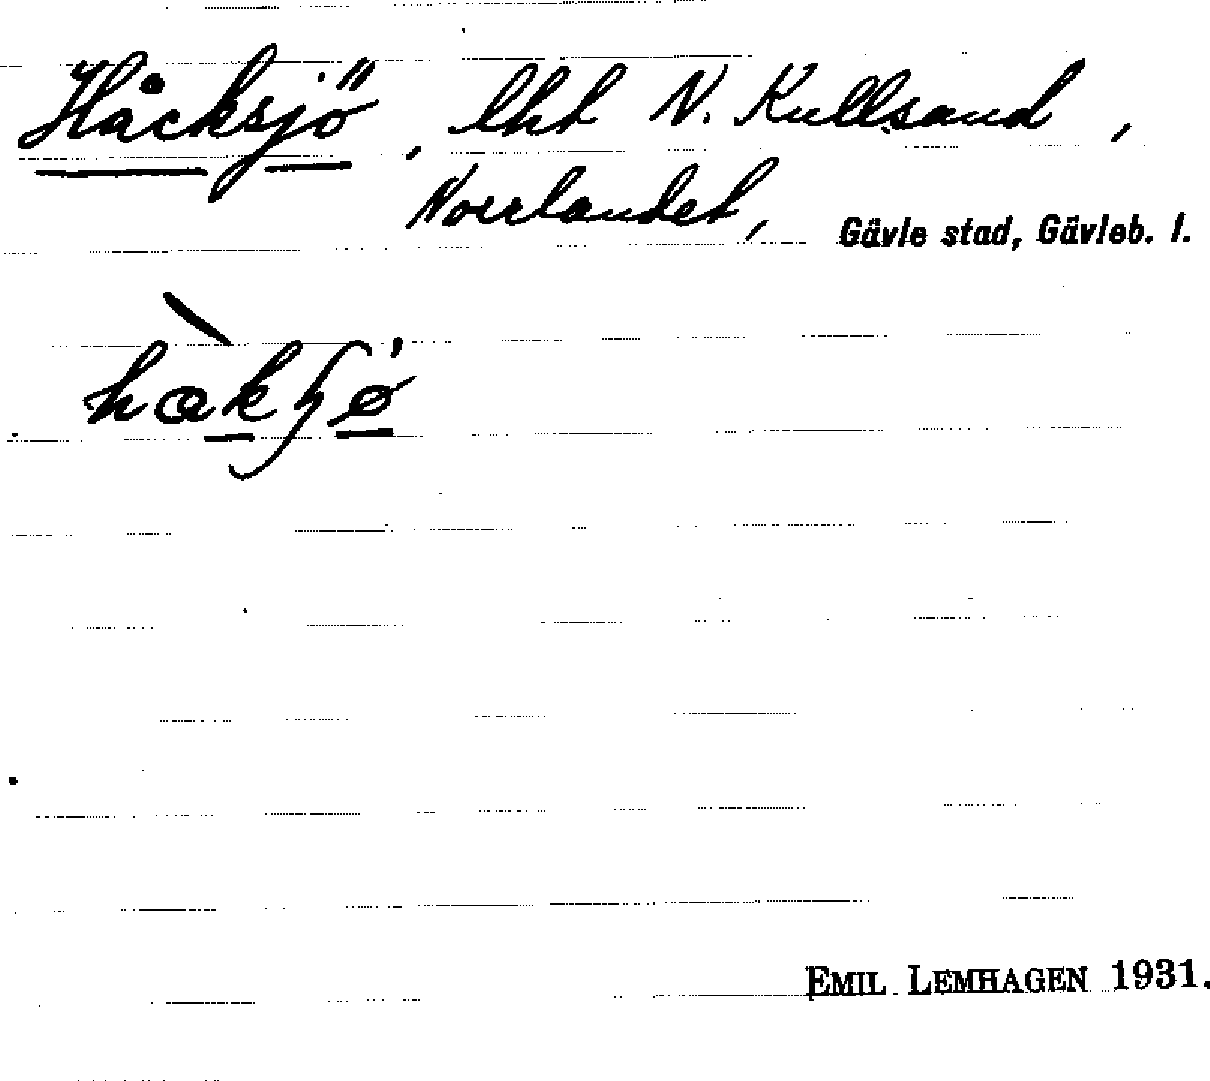 Håcksjö, lht N. Kullsand,
Norrlandet, Gävle stad, Gävleb. l.
EMIL LEMHAGEN 1931.